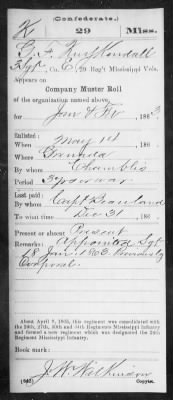 (Confederate.)
K 29 Miss.
G. F. Kuykendall
Sgt, Co. C, 29 Reg't Mississippi Vols.
Appears on
Company Muster Roll
of the organization named above,
for Jan & Feb, 1863.
Enlisted:
When May 1st, 186
Where Grenada
By whom Chamblis
Period 3 yrs or war
Last paid:
By whom Capt
To what time Dec 31, 186
Present or absent Present
Remarks: Appointed Sgt
18 Jan 1863 Previously
Corporal
About April 9, 1865, this regiment was consolidated with
the 24th, 27th, 30th and 34th Regiments Mississippi Infantry
and formed a new regiment which was designated the 24th
Regiment Mississippi Infantry.
Book mark:
J. W. Wilkinson
(642) Copyist.